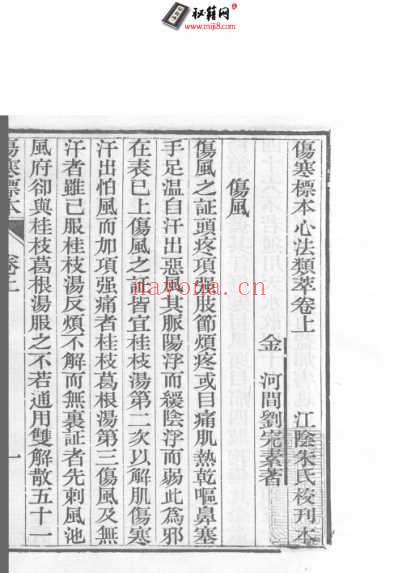 秘籍网
www.miji8.com
傷寒標本心法類萃卷上
江陰朱氏校刊本
金 河間劉完素著
傷風
傷風之証頭疼項強肢節煩疼或目痛肌熱乾嘔鼻塞
手足温自汗出惡風其脈陽浮而緩陰浮而弱此為邪
在表已上傷風之証皆宜桂枝湯第二次以解肌傷寒
汗出怕風而加項强痛者桂枝葛根湯第三傷風及無
汗者雖已服桂枝湯反煩不解而無裏証者先刺風池
風府卻與桂枝葛根湯服之不若通用雙解散五十一
傷寒標本
卷上
一
nayona.cn